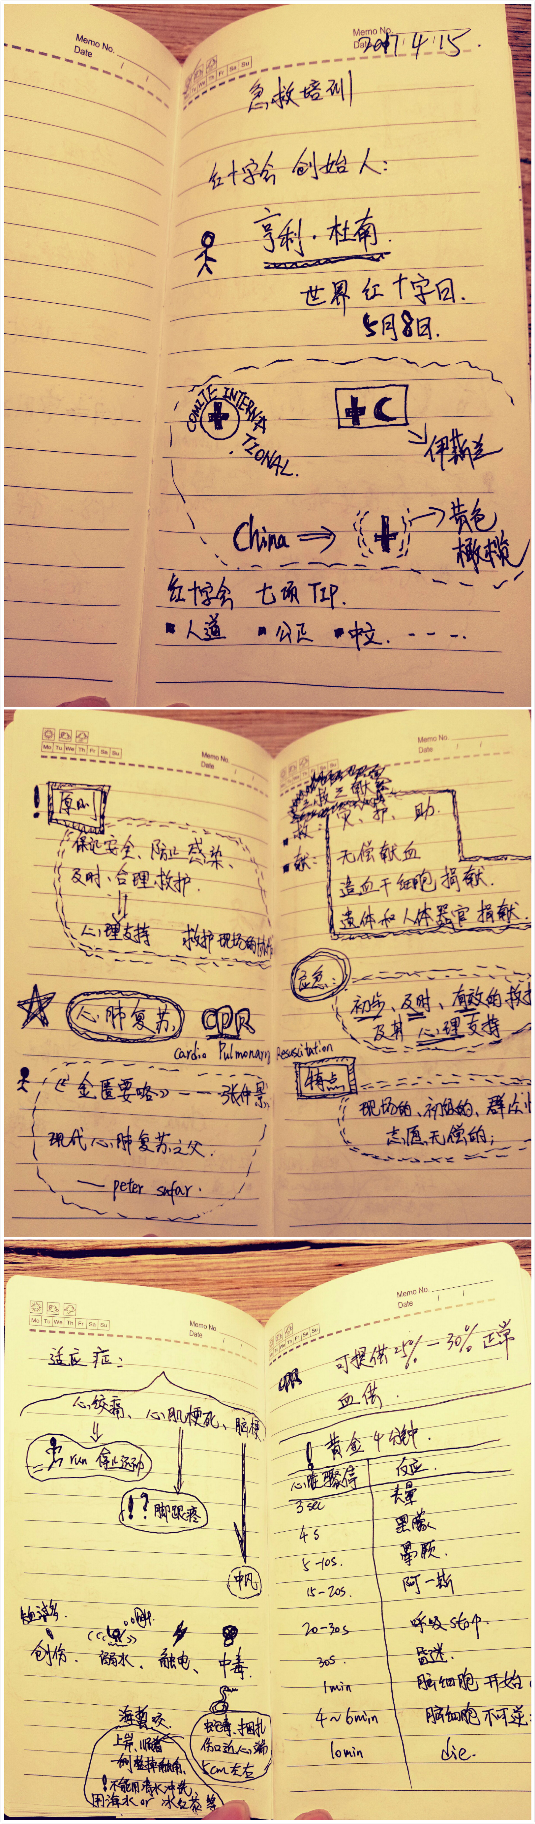 Memo No.
Date
Mo Tu We Th Fr Sa Su
Memo No.
Date 2017.4.15.
急救培训
红十字会 创始人:
亨利·杜南.
世界红十字日.
5月8日.
COMITE INTERNATIONAL.
伊斯兰
China ⇒
→黄色
橄榄
红十字会 七项 TIP.
▪人道 ▪公正 ▪中立. - - - .
Mo Tu We Th Fr Sa Su
Memo No.
Date
! 原则
保证安全、防止感染、
及时、合理救护.
心理支持 救护现场的协作
心肺复苏 CPR
Cardio Pulmonary Resuscitation
《金匮要略》—— 张仲景
现代心肺复苏之父.
— peter safar.
Memo No.
Date
三救三献
▪救: 灾、护、助.
▪献: 无偿献血
造血干细胞捐献.
遗体和人体器官捐献.
应急:
初步、及时、有效的救护
及其心理支持
特点
现场的、初级的、群众性
志愿无偿的;
Mo Tu We Th Fr Sa Su
Memo No.
Date
适应症:
心绞痛、心肌梗死、脑梗
run 停止运动
!? 脚跟疼
中风
创伤. 溺水. 触电、中毒.
海蜇咬
上岸,
!不能用清水冲洗,
用海水 or 冰红茶等
蛇毒, 捆扎
伤口近心端
5cm左右
Memo No.
Date
CPR 可提供 25% — 30% 正常
血供.
! 黄金 4分钟.
心脏骤停 反应.
3sec 头晕
4s 黑蒙
5-10s. 晕厥.
15-20s. 阿-斯
20-30s 呼吸stop.
30s. 昏迷.
1min 脑细胞开始
4~6min 脑细胞不可逆
10min die.